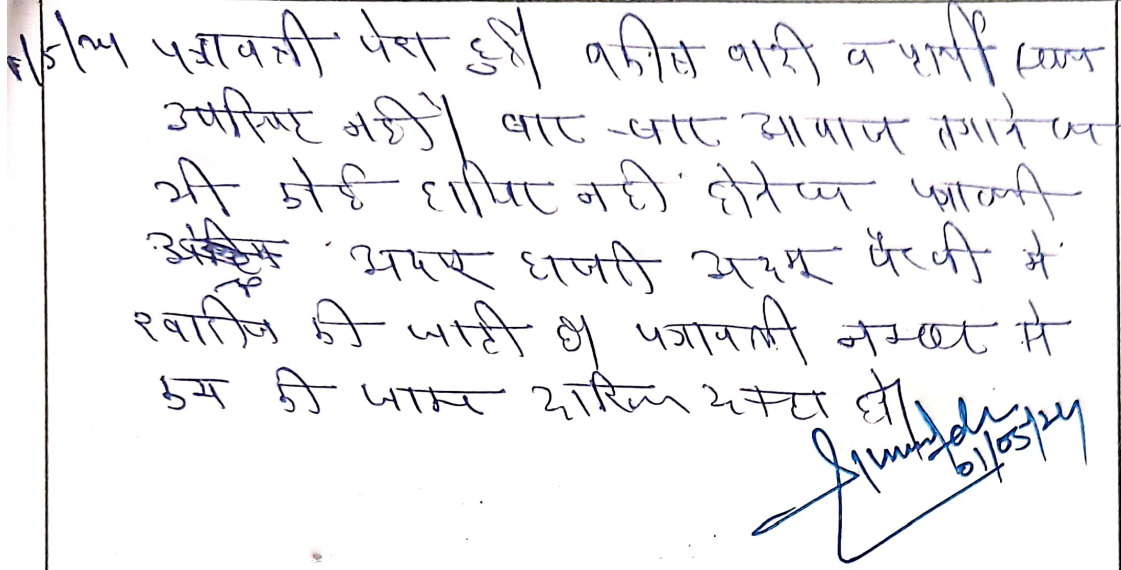 1/5/24 पत्रावली पेश हुई। वकील वादी व प्रार्थी स्वयं
उपस्थित नहीं। बार-बार आवाज लगाने पर
भी कोई हाजिर नहीं होने पर पत्रावली
अदम हाजरी अदम पैरवी में
खारिज की जाती है। पत्रावली नम्बर से
कम की जाकर दाखिल दफ्तर हो।
01/05/24